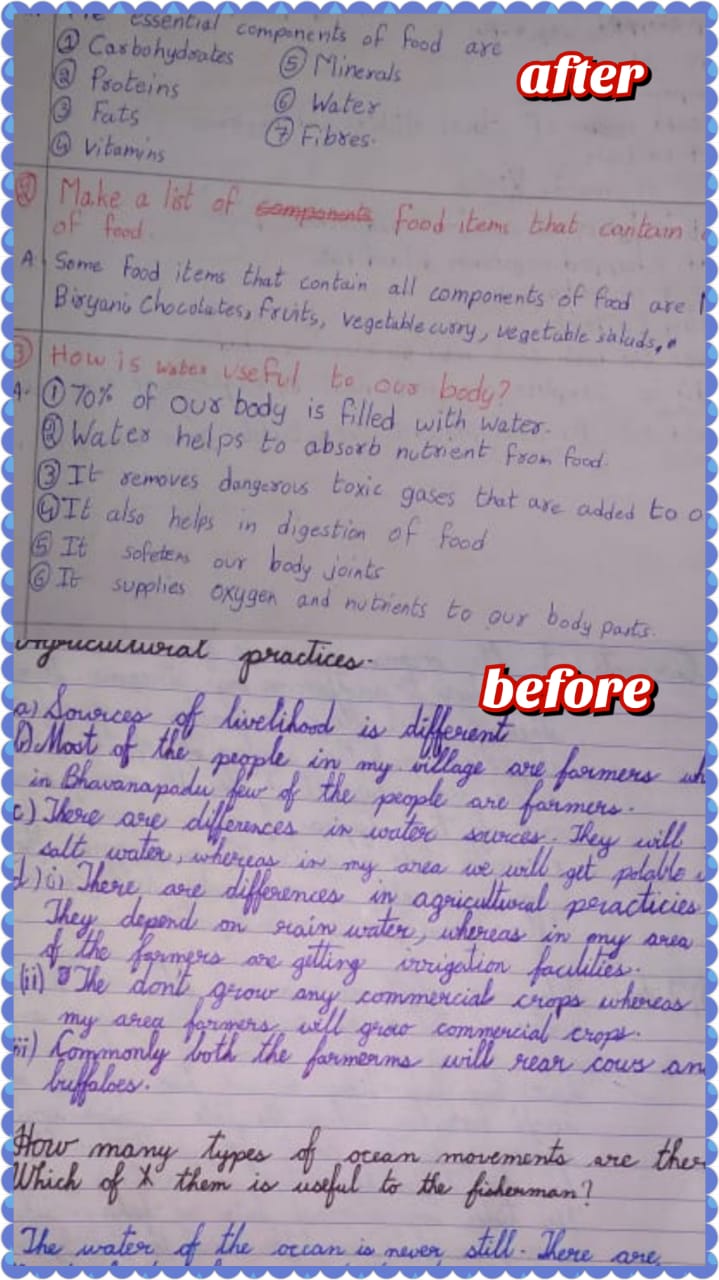 essential components of food are
① Carbohydrates ⑤ Minerals
after
② Proteins ⑥ Water
③ Fats ⑦ Fibres.
④ Vitamins
② Make a list of components food items that contain
of food.
A. Some food items that contain all components of food are
Biryani, Chocolates, fruits, vegetable curry, vegetable salads,
③ How is water useful to our body?
A. ① 70% of our body is filled with water.
② Water helps to absorb nutrient from food.
③ It removes dangerous toxic gases that are added to
④ It also helps in digestion of food
⑤ It sofetens our body joints
⑥ It supplies oxygen and nutrients to our body parts.
Agricultural practices.
before
a) Sources of livelihood is different
b) Most of the people in my village are farmers
in Bhavanapadu few of the people are farmers.
c) There are differences in water sources. They will
salt water, whereas in my area we will get potable
d) i) There are differences in agricultural peracticies
They depend on rain water, whereas in my area
of the farmers are getting irrigation facilities.
(ii) The don't grow any commercial crops whereas
my area farmers will grow commercial crops.
iii) Commonly both the farmerms will rear cows an
buffaloes.
How many types of ocean movements are ther
Which of them is useful to the fisherman?
The water of the ocean is never still. There are